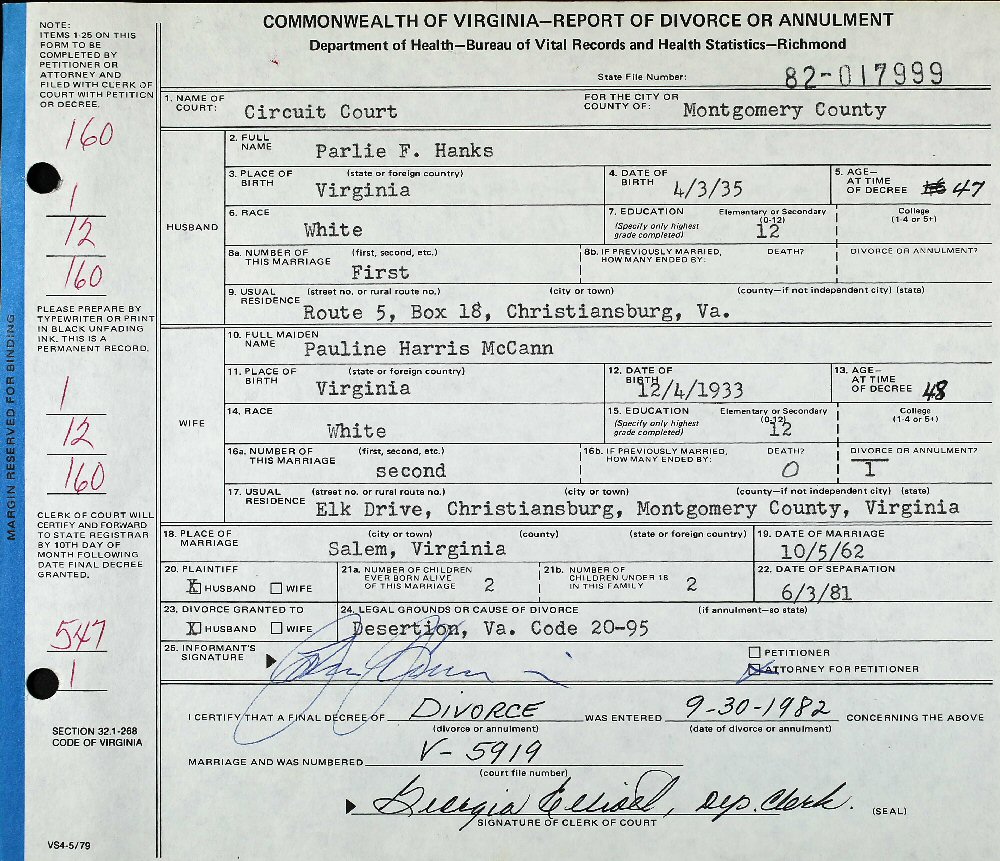 COMMONWEALTH OF VIRGINIA—REPORT OF DIVORCE OR ANNULMENT
Department of Health—Bureau of Vital Records and Health Statistics—Richmond
NOTE:
ITEMS 1-25 ON THIS
FORM TO BE
COMPLETED BY
PETITIONER OR
ATTORNEY AND
FILED WITH CLERK OF
COURT WITH PETITION
OR DECREE.
160
1
12
160
PLEASE PREPARE BY
TYPEWRITER OR PRINT
IN BLACK UNFADING
INK. THIS IS A
PERMANENT RECORD.
1
12
160
CLERK OF COURT WILL
CERTIFY AND FORWARD
TO STATE REGISTRAR
BY 10TH DAY OF
MONTH FOLLOWING
DATE FINAL DECREE
GRANTED.
547
1
SECTION 32.1-268
CODE OF VIRGINIA
VS4-5/79
MARGIN RESERVED FOR BINDING
State File Number: 82-017999
1. NAME OF COURT: Circuit Court FOR THE CITY OR COUNTY OF: Montgomery County
HUSBAND
2. FULL NAME Parlie F. Hanks
3. PLACE OF BIRTH (state or foreign country) Virginia 4. DATE OF BIRTH 4/3/35 5. AGE— AT TIME OF DECREE 47
6. RACE White 7. EDUCATION (Specify only highest grade completed) Elementary or Secondary (0-12) 12 College (1-4 or 5+)
8a. NUMBER OF THIS MARRIAGE (first, second, etc.) First 8b. IF PREVIOUSLY MARRIED, HOW MANY ENDED BY: DEATH? DIVORCE OR ANNULMENT?
9. USUAL RESIDENCE (street no. or rural route no.) (city or town) (county—if not independent city) (state)
Route 5, Box 18, Christiansburg, Va.
WIFE
10. FULL MAIDEN NAME Pauline Harris McCann
11. PLACE OF BIRTH (state or foreign country) Virginia 12. DATE OF BIRTH 12/4/1933 13. AGE— AT TIME OF DECREE 48
14. RACE White 15. EDUCATION (Specify only highest grade completed) Elementary or Secondary (0-12) 12 College (1-4 or 5+)
16a. NUMBER OF THIS MARRIAGE (first, second, etc.) second 16b. IF PREVIOUSLY MARRIED, HOW MANY ENDED BY: DEATH? 0 DIVORCE OR ANNULMENT? 1
17. USUAL RESIDENCE (street no. or rural route no.) (city or town) (county—if not independent city) (state)
Elk Drive, Christiansburg, Montgomery County, Virginia
18. PLACE OF MARRIAGE (city or town) (county) (state or foreign country) Salem, Virginia 19. DATE OF MARRIAGE 10/5/62
20. PLAINTIFF X HUSBAND WIFE 21a. NUMBER OF CHILDREN EVER BORN ALIVE OF THIS MARRIAGE 2 21b. NUMBER OF CHILDREN UNDER 18 IN THIS FAMILY 2 22. DATE OF SEPARATION 6/3/81
23. DIVORCE GRANTED TO X HUSBAND WIFE 24. LEGAL GROUNDS OR CAUSE OF DIVORCE (if annulment—so state) Desertion, Va. Code 20-95
25. INFORMANT'S SIGNATURE
PETITIONER
ATTORNEY FOR PETITIONER
I CERTIFY THAT A FINAL DECREE OF DIVORCE WAS ENTERED 9-30-1982 CONCERNING THE ABOVE
(divorce or annulment) (date of divorce or annulment)
MARRIAGE AND WAS NUMBERED V-5919
(court file number)
Georgia Elliott, Dep. Clerk. (SEAL)
SIGNATURE OF CLERK OF COURT